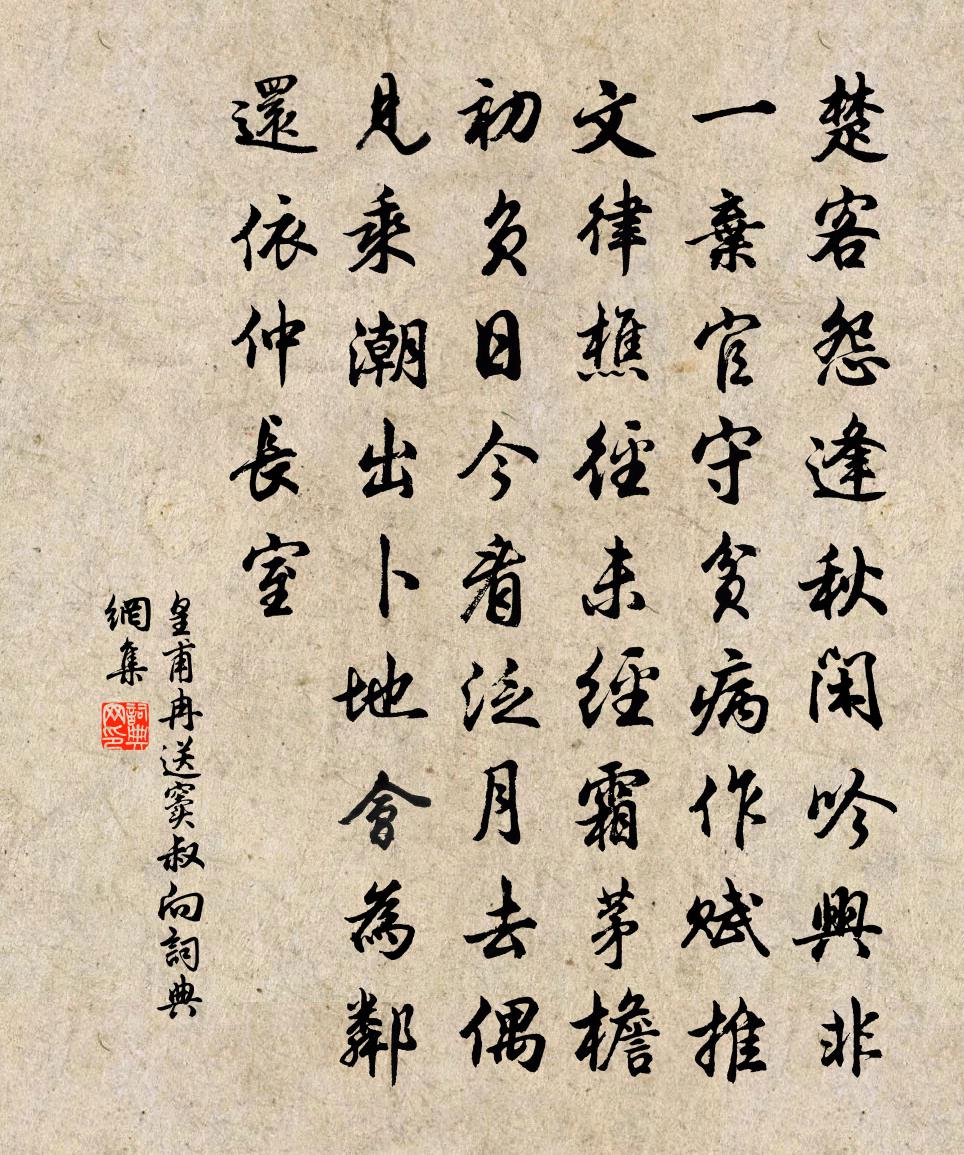 楚客怨逢秋閑吟興非
一棄官守貧病作賦推
文律樵徑未經霜茅檐
初負日今看泛月去偶
見乘潮出卜地會為鄰
還依仲長室
皇甫冉送竇叔向詞典
網集
詞典
网印